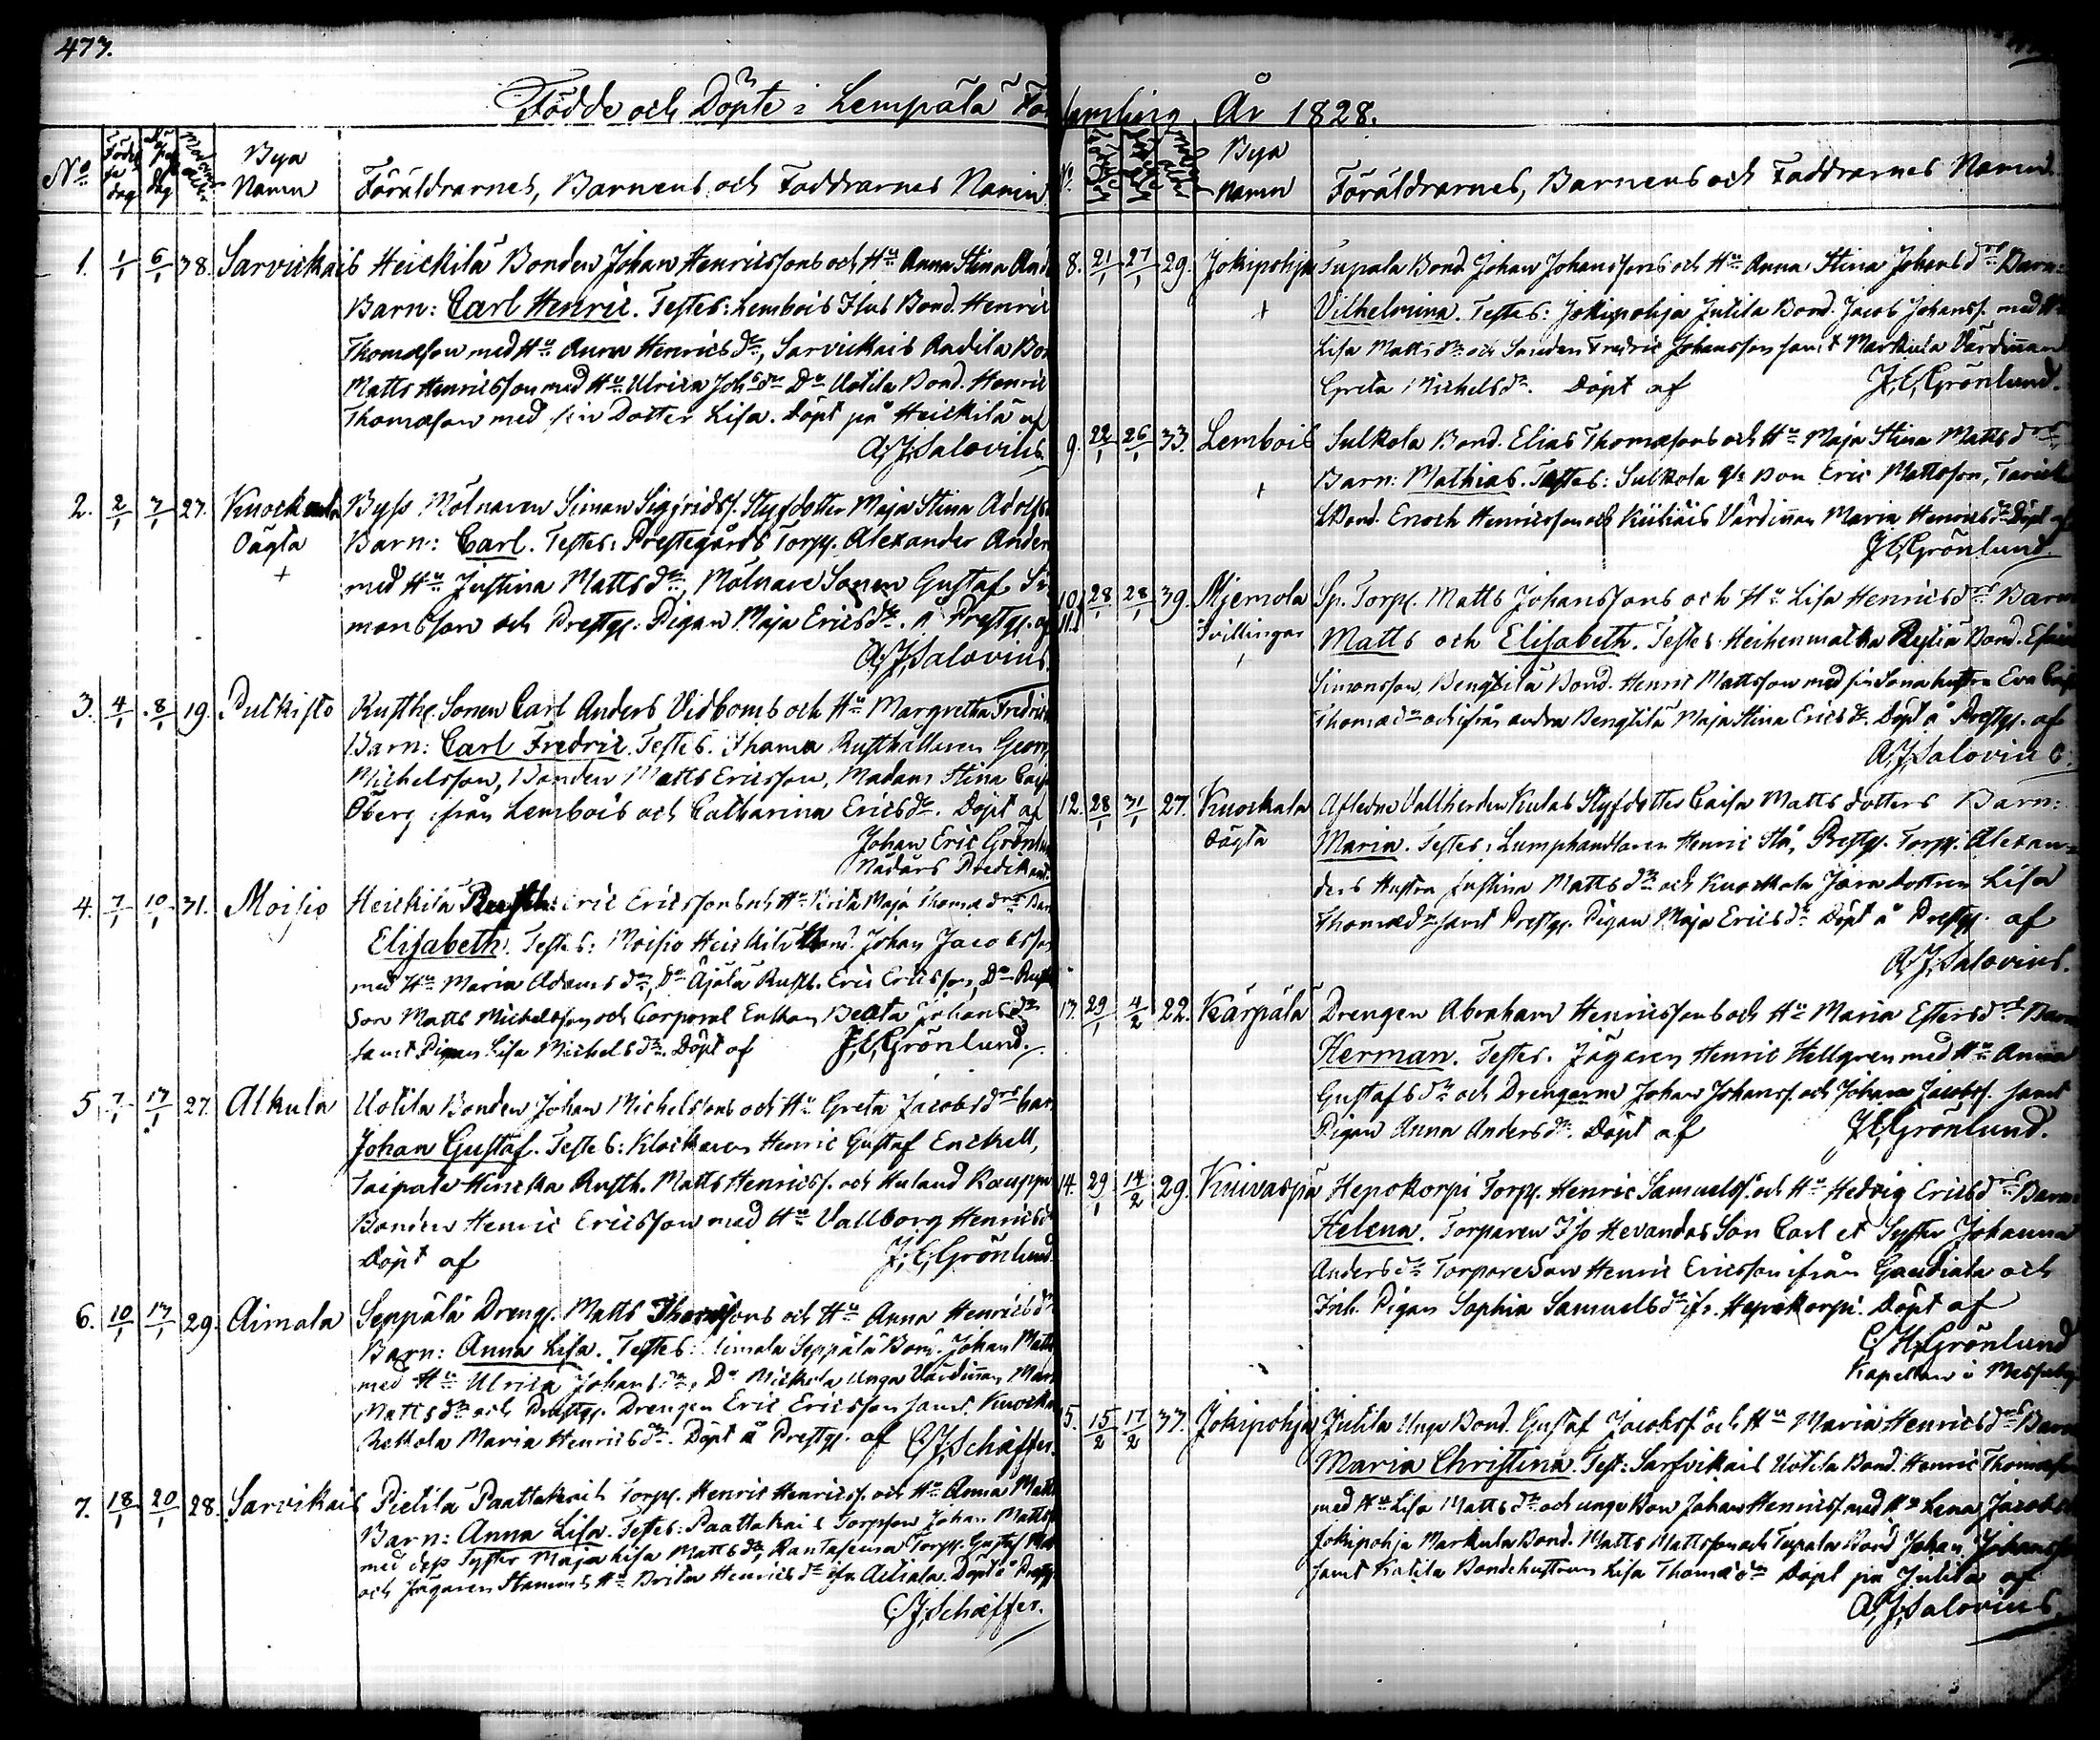 473.
Födde och Döpte i Lempälä För
samling År 1828.
No
Födelse dag
Döpelse dag
Modrens ålder
Bya Namn
Föräldrarnes, Barnens och Faddrarnes Namn
1. 1/1 6/1 38. Sarvickais Heickilä Bonden Johan Henricssons och Hu Anna Stina And
Barn: Carl Henric. Testes: Lembois Ilus Bond. Henric
Thomæson med Hu Anna Henrics dr, Sarvickais Andila Bon
Matts Henricsson med Hu Ulrica Johs dr Do Uotila Bond. Henric
Thomæson med sin Dotter Lisa. Döpt på Heickilä af
A. J. Salovius.
2. 2/1 7/1 27. Kuockala Byss Mölnaren Simon Sigfridss. Styfdotter Maja Stina Adolfs
Oägta Barn: Carl. Testes: Prestegårds Torp. Alexander Ander
+ med Hu Justina Matts dr, Mölnare Sonen Gustaf Si-
monsson och Prestg. Pigan Maja Erics dr. å Prestg. af
A. J. Salovius.
3. 4/1 8/1 19. Pulkisto Rusth. Sonen Carl Anders Vidboms och Hu Margretha Fredric
Barn: Carl Fredric. Testes. Rusthållaren Georg
Michelsson, Bonden Matts Ericsson, Madam Stina Caisa
Öberg ifrån Lembois och Catharina Erics dr. Döpt af
Johan Eric Grönlu
Nådårs Predikant.
4. 7/1 10/1 31. Moisio Heickilä Rusth. Eric Ericssons och Hu Maja Thomæ drs Barn
Elisabeth. Testes: Moisio Heickilä Bond. Johan Jacobsson
med Hu Maria Adams dr, Do Äjälä Rusth. Eric Ericsson, Do Rusth
Son Matts Michelsson och Corporal Enkan Beata Johans dr
samt Pigan Lisa Michels dr. Döpt af J. E. Grönlund.
5 7/1 17/1 27. Alkula Uotila Bonden Johan Michelssons och Hu Greta Jacobs drs barn
Johan Gustaf. Testes: Klockaren Henric Gustaf Enckell,
Taipale Rusth. Matts Henricss. och Huland
Bonden Henric Ericsson med Hu Vallborg Henrics d
Döpt af J. E. Grönlund.
6. 10/1 13/1 29. Aimala Seppälä Dreng. Matts Thomæsons och Hu Anna Henrics dr
Barn: Anna Lisa. Testes: Aimala Seppälä Bond. Johan Matts
med Hu Ulrica Johans dr, Do Mickola Unga Värdinnan
Matts dr och Prestg. Drengen Eric Ericsson samt Kuocka
Maria Henrics dr. Döpt å Prestg. af C. J. Schæffer.
7. 18/1 20/1 28. Sarvikais Pietilä Paattakais Torp. Henric Henricss. och Hu Anna Matts
Barn: Anna Lisa. Testes: Paattakais Johan Matts
med dess Syster Maja Lisa Matts dr, Torp. Gustaf
och Jägaren Hu Brita Henrics dr ifr. Döpt å Prestg.
C. J. Schæffer.
No
Bya Namn
Föräldrarnes, Barnens och Faddrarnes Namn.
8. 21/1 27/1 29. Jokipohja Tupala Bond. Johan Johanssons och Hu Anna Stina Johans drs Barn:
+ Vilhelmina. Testes: Jokipohja Jutila Bond. Jacob Johanss. med Hu
Lisa Matts dr och Smeden Fredric Johansson samt Markula Värdinnan
Greta Michels dr. Döpt af J. E. Grönlund.
9. 22/1 26/1 33. Lembois Sulkola Bond. Elias Thomæsons och Hu Maja Stina Matts drs
+ Barn: Mathias. Testes: Sulkola Bon Eric Mattsson,
Bond. Enoch Henricsson och Värdinnan Maria Henrics dr Döpt af
J. E. Grönlund.
10. 11. 28/1 28/1 39. Mjemola Sp. Torp. Matts Johanssons och Hu Lisa Henrics drs Barn
Tvillingar Matts och Elisabeth. Testes Bond.
Simonsson, Bengtilä Bond. Henric Mattsson med sin Sona hustru Eva Caisa
Thomæ dr och ifrån andra Bengtilä Maja Stina Erics dr. Döpt å Prestg. af
A. J. Salovius.
12. 28/1 31/1 27. Kuockala Aflidne Vallherden Styfdotter Caisa Matts dotters Barn:
Oägta Maria. Testes: Lumphandlaren Henric Stå, Prestg. Torp. Alexan-
ders Hustru Justina Matts dr och Kuockala Lisa
Thomæ dr samt Prestg. Pigan Maja Erics dr Döpt å Prestg. af
A. J. Salovius.
13. 29/1 4/2 22. Kärpälä Drengen Abraham Henricssons och Hu Maria Esters drs Barn
Herman. Testes. Jägaren Henric Hellgren med Hu Anna
Gustafs dr och Drengarne Johan Johanss. och Johan Jacobss. samt
Pigan Anna Anders dr. Döpt af J. E. Grönlund.
14. 29/1 14/2 29. Kuivaspä Hepokorpi Torp. Henric Samuelss. och Hu Hedvig Erics drs Barn
Helena. Torparen Son Carl et Syster Johanna
Anders dr Torpare Son Henric Ericsson ifrån och
Inh. Pigan Sophia Samuels dr ifr. Hepokorpi. Döpt af
C. H. Grönlund
Kapellan i Messuby
15. 15/2 17/2 33. Jokipohja Jutila Unga Bond. Gustaf Jacobss. och Hu Maria Henrics drs Barn
Maria Christina. Test: Sarfvikais Uotila Bond. Henric Thomæson
med Hu Lisa Matts dr och unga Bon Johan Henricss. med Hu Lena Jacobs
Jokipohja Markula Bond. Matts Mattsson och Tupala Bond Johan Johansson
samt Bondehustrun Lisa Thomæ dr Döpt på Jutila af
A. J. Salovius.